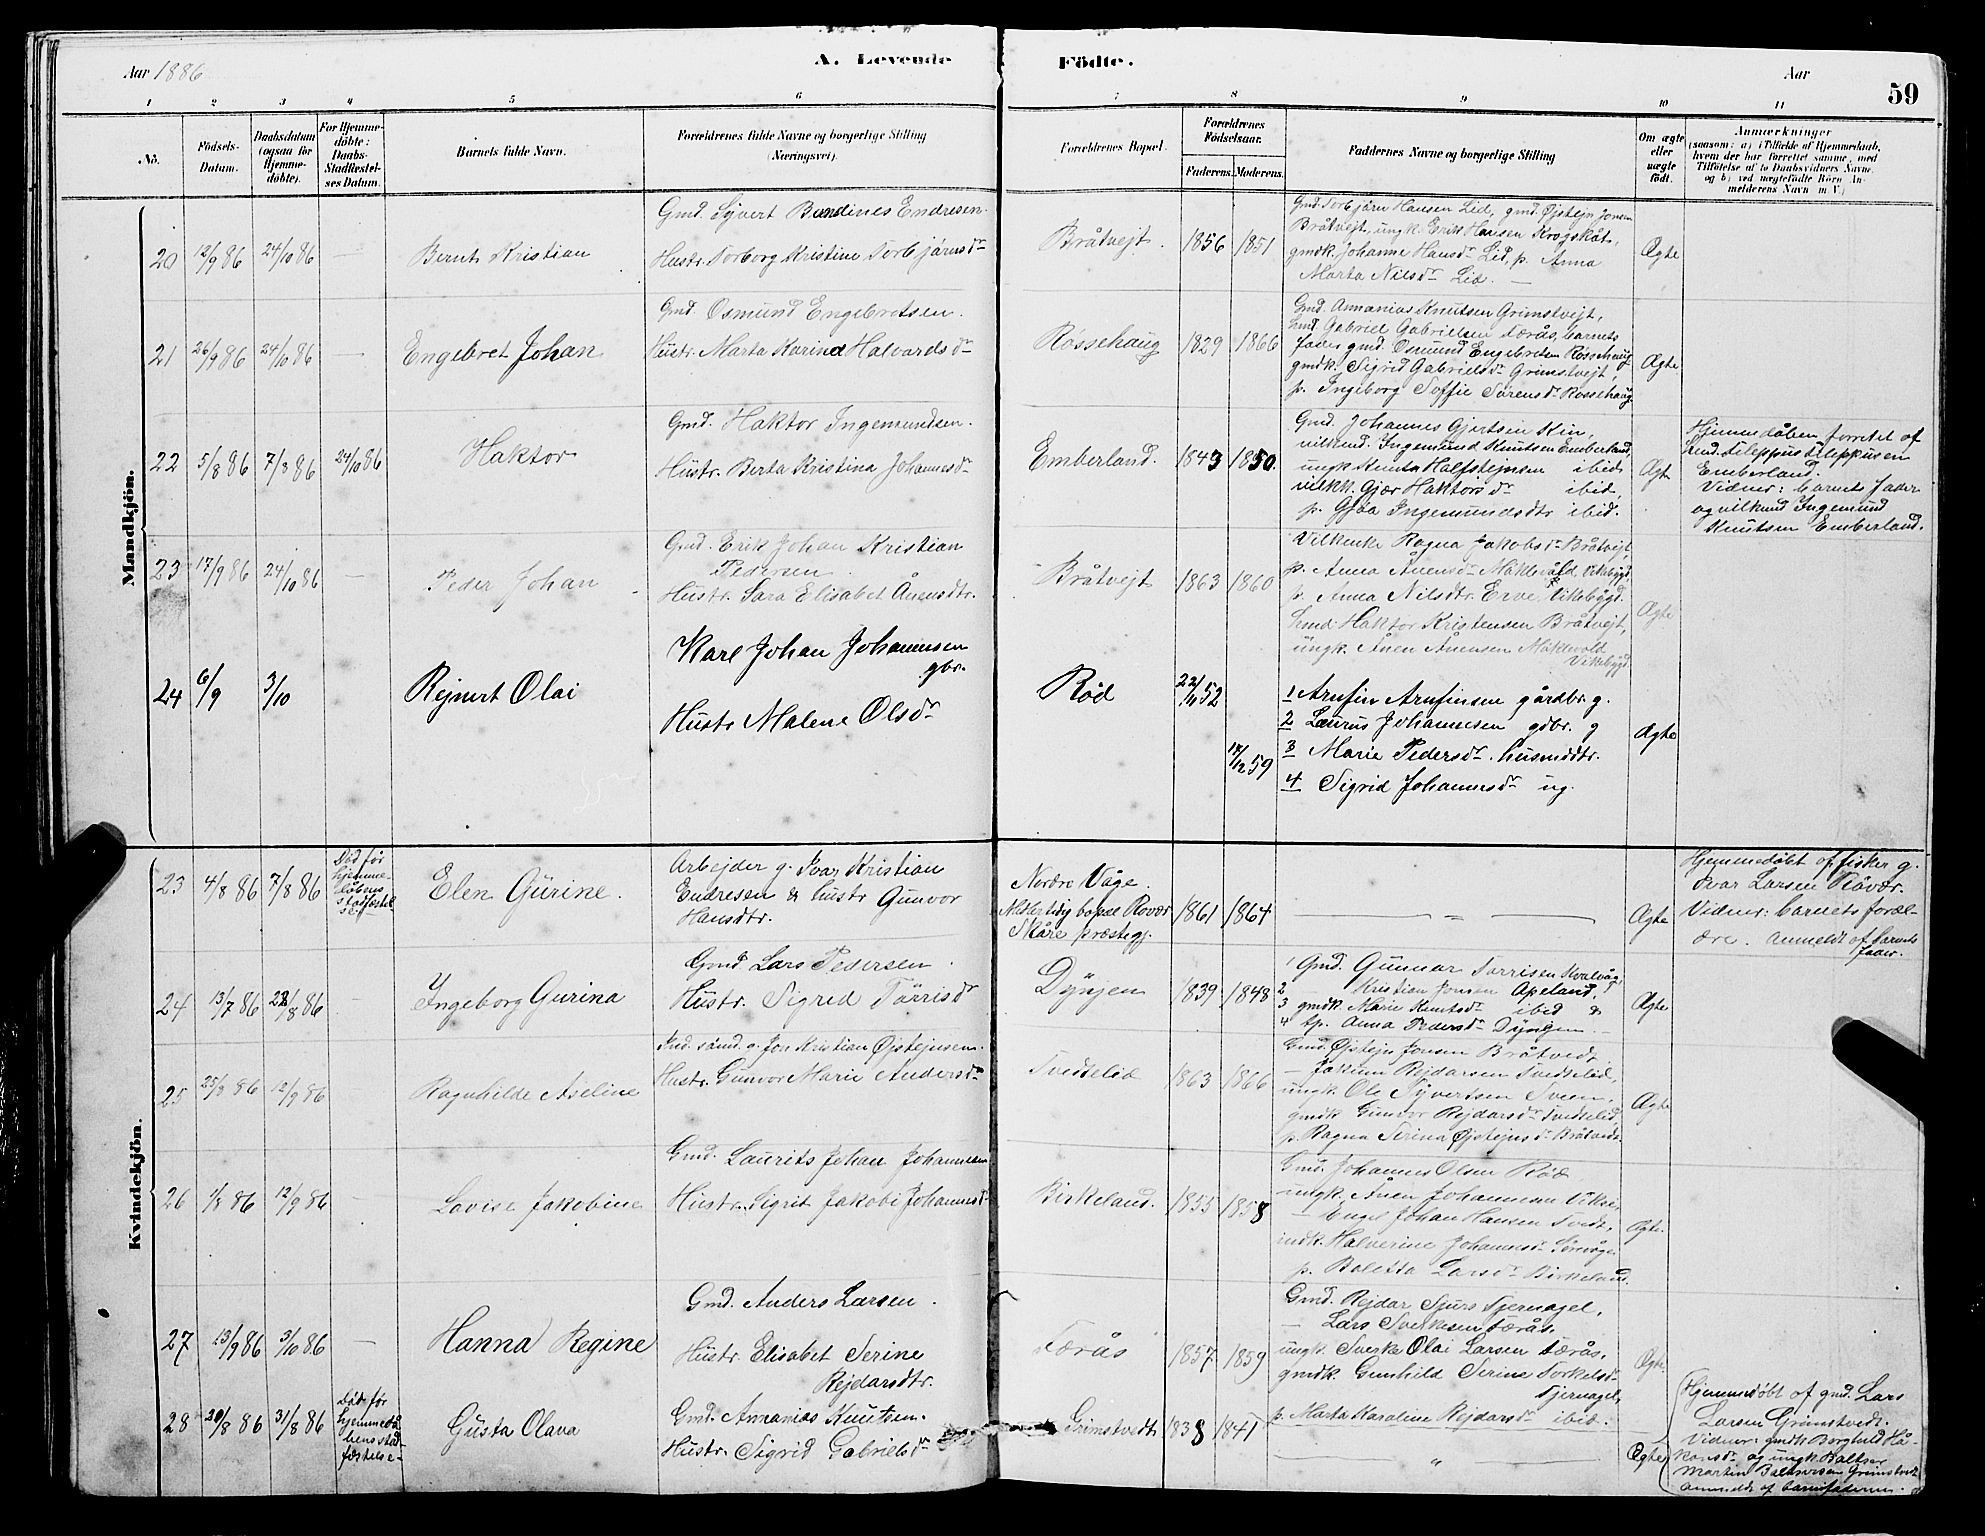 Aar 1886
A. Levende
Födte.
Aar
59
1 2 3 4 5 6 7 8 9 10 11
No.
Födsels-Datum.
Daabsdatum (ogsaa for Hjemme-döbte).
For Hjemme-döbte: Daabs-Stadfæstel-ses Datum.
Barnets fulde Navn.
Forældrenes fulde Navne og borgerlige Stilling (Næringsvei).
Forældrenes Bopæl.
Forældrenes Födselsaar.
Faderens. Moderens.
Faddernes Navne og borgerlige Stilling
Om ægte eller uægte födt.
Anmærkninger
(saasom: a) i Tilfælde af Hjemmedaab, hvem der har forrettet samme, med Tilföielse af to Daabsvidners Navne, og b) ved uægtefödte Börn Anmelderens Navn m. V.)
Mandkjön.
20 12/9 86 24/10 86 — Bernt Kristian
Gmd. Syvert Bendines Endresen.
Hustr. Torborg Kristine Torbjörnsdr
Bråtvejt. 1856 1851
Gmd. Torbjörn Hansen Lid, gmd. Øjstejn Jonsen
Bråtvejt, ungk. Erik Hansen Krogskåt,
gmdk. Johanne Hansdr Lid, p. Anna
Marta Nilsdr Lid. —
Ægte
21 26/9 86 24/10 86 — Engebret Johan
Gmd. Osmund Engebretsen.
Hustr. Marta Karina Halvardsdr
Rossehaug 1829 1866
Gmd. Annanias Knutsen Grimstvejt,
Gmd Gabriel Gabrielsen Færås, barnets
fader gmd. Osmund Engebretsen Rossehaug
gmdk. Sigrid Gabrielsdr Grimstvejt,
p. Ingeborg Soffie Sörensdr Rossehaug.
Ægte
22 5/8 86 7/8 86 24/10 86 Haktor
Gmd. Haktor Ingemundsen.
Hustr. Berta Kristina Johannesdr
Emberland. 1843 1850.
Gmd. Johannes Gjertsen Kin,
vilkmd. Ingemund Knutsen Emberland,
ungk Knut Halfstejnsen ibid,
vilkk. Gjær Haktorsdr ibid,
p. Gjöa Ingemundsdtr ibid.
Ægte
Hjemmedåben forretet af
Gmd. Fileppus Fileppusen
Emberland.
Vidner: barnets fader
og vilkmd Ingemund
Knutsen Emberland.
23 17/9 86 24/10 86 — Peder Johan
Gmd. Erik Johan Kristian
Pedersen
Hustr. Sara Elisabet Ånensdtr.
Bråtvejt 1863 1860
Vilkenke Ragna Jakobsdr Bråtvejt,
p. Anna Ånensdr Maklevåld, Vikebygd,
p. Anna Nilsdtr. Erve, Vikebygd.
Gmd. Haktor Kristensen Bråtvejt,
ungk. Ånen Ånensen Maklevold
Vikebygd.
Ægte
24 6/9 3/10 Rejnert Olai
Karl Johan Johannsen
gbr.
Hustr Malene Olsdr
Röd 22/11 52
17/12 59
1 Arnfin Arnfinsen gårdbr. g.
2 Laurus Johannesen gdbr. g
3 Marie Pedersdr. husmdtr.
4 Sigrid Johannesdr ug.
Ægte
Kvindekjön.
23 4/8 86 7/8 86
Död för
hjemme-
döbens
stadfæstel
se
Elen Gurine.
Arbejder g. Ivar Kristian
Endresen & hustr Gunvor
Hansdtr.
Nordre Våge.
Midlertidig bopæl Rövær
Skåre præstegj.
1861 1864
— " —
Ægte
Hjemmedöbt af fisker g.
Ivar Larsen Rövær.
Vidner: barnets foræl-
dre. Anmeldt af barnets
fader.
24 13/7 86 22/8 86 — Ingeborg Gurina
Gmd. Lars Pedersen.
Hustr. Sigrid Törrisdr
Dynjen 1839 1848
1 Gmd. Gunnar Torrisen Kvalvåg
2 — Kristian Jonsen Apeland,
3 gmdk. Marie Knutsdr ibid &
4 tp. Anna Pedersdr Dynjen
Ægte
25 25/8 86 12/9 86 — Ragnhilde Aseline
Ind. sömd. g. Jon Kristian Øjstejnsen.
Hustr. Gunvor Marie Andersdr
Tvedtelid 1863 1866
Gmd. Øjstejn Jonsen Bråtvedt
— Jakum Rejdarsen Tvedtelid,
ungk. Ole Syvertsen Sveen,
gmdk. Gunvor Rejdarsdr Tvedtelid
p. Ragna Serina Øjstejnsdr Bråtvedt
Ægte
26 1/8 86 12/9 86 — Lovise Jakobine
Gmd. Laurits Johan Johannesen
Hustr. Sigrit Jakobi Johannesdr
Birkeland. 1855 1858
Gmd. Johannes Olsen Röd
ungk. Ånen Johannesen Vikse,
— Engel Johan Hansen Tvedt,
indk. Halverine Johannesdr Sörevåge
p. Boletta Larsdr Birkeland.
Ægte.
27 13/9 86 3/10 86 — Hanna Regine
Gmd. Anders Larsen.
Hustr. Elisabet Serine
Rejdarsdtr.
Færås 1857 1859
Gmd. Rejdar Sjurs Tjernagel,
— Lars Sverkesen Færås.
ungk. Sverke Olai Larsen Færås,
gmdk. Gunhild Serine Torkelsdr
Tjernagel,
p. Marta Karoline Rejdarsdr ibid.
Ægte
28 20/8 86 31/8 86
Död för
hjemmedå
bens stad
fæstelse
Gusta Olava
Gmd. Annanias Knutsen.
Hustr. Sigrid Gabrielsdr
Grimstvedt 1838 1841
"
Ægte
Hjemmedöbt af gmd. Lars
Larsen Grimstvedt.
Vidner: gmdk Borghild Hå-
konsdr og ungk. Baltser
Martin Baltsersen Grimstvedt
Anmeldt af barnefaderen.